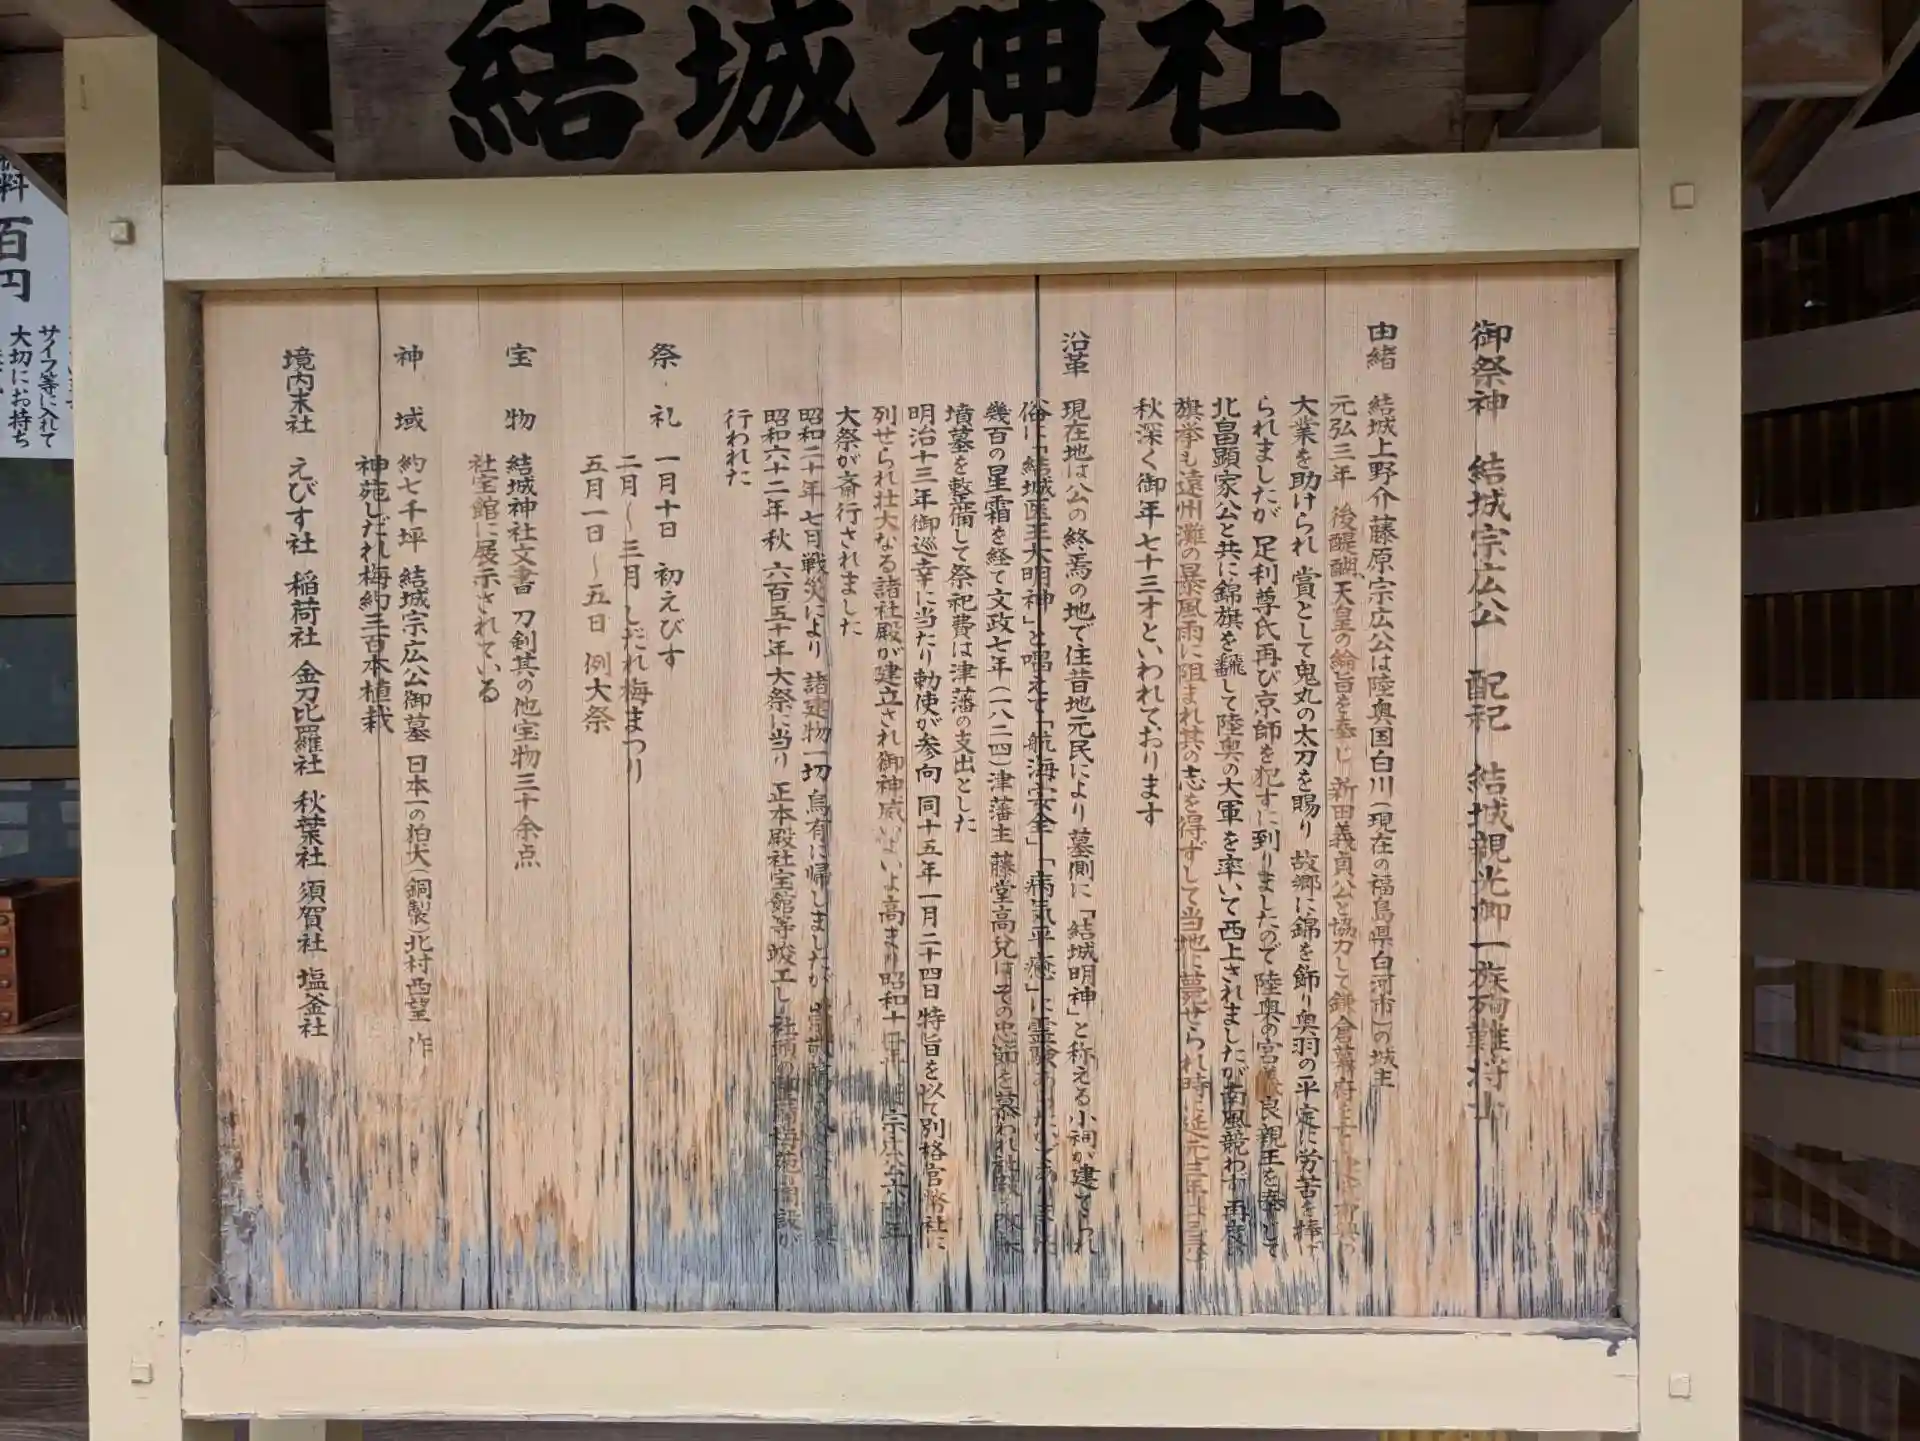 結城神社
御祭神 結城宗広公 配祀 結城親光卿 一族殉難将士
由緒 結城上野介藤原宗広公は陸奥国白川(現在の福島県白河市)の城主
元弘三年 後醍醐天皇の綸旨を奉じ 新田義貞公と協力して鎌倉幕府
大業を助けられ 賞として鬼丸の太刀を賜り 故郷に錦を飾り奥羽の平定に労苦を捧げ
られましたが 足利尊氏再び京師を犯すに到りましたので 陸奥の宮義良親王を奉じて
北畠顕家公と共に錦旗を飜して陸奥の大軍を率いて西上されましたが南風競わず 再度
旗挙も遠州灘の暴風雨に阻まれ其の志を得ずして当地に薨せられ時に延元三年
秋深く御年七十三才といわれております
沿革 現在地は公の終焉の地で往昔地元民により墓側に「結城明神」と称える小祠が建てられ
俗に「結城医王大明神」と唱えて「航海安全」「病気平癒」に霊験あ
幾百の星霜を経て文政七年(一八二四)津藩主藤堂高兌はその忠節を慕われ社殿
墳墓を整備して祭祀費は津藩の支出とした
明治十三年御巡幸に当たり勅使が参向 同十五年一月二十四日特旨を以て別格官幣社に
列せられ壮大なる諸社殿が建立され御神威いよいよ高まり昭和十 宗広公六百年
大祭が斎行されました
昭和二十年七月戦災により 諸建物一切烏有に帰しましたが
昭和六十二年秋 六百五十年大祭に当り 正本殿社宝館等竣工し社頭の 梅苑 設が
行われた
祭礼 一月十日 初えびす
二月～三月 しだれ梅まつり
五月一日～五日 例大祭
宝物 結城神社文書 刀剣其の他宝物三十余点
社宝館に展示されている
神域 約七千坪 結城宗広公御墓 日本一の狛犬(銅製)北村西望 作
神苑しだれ梅約三百本植栽
境内末社 えびす社 稲荷社 金刀比羅社 秋葉社 須賀社 塩釜社
料
百円
サイフ等に入れて
大切にお持ち